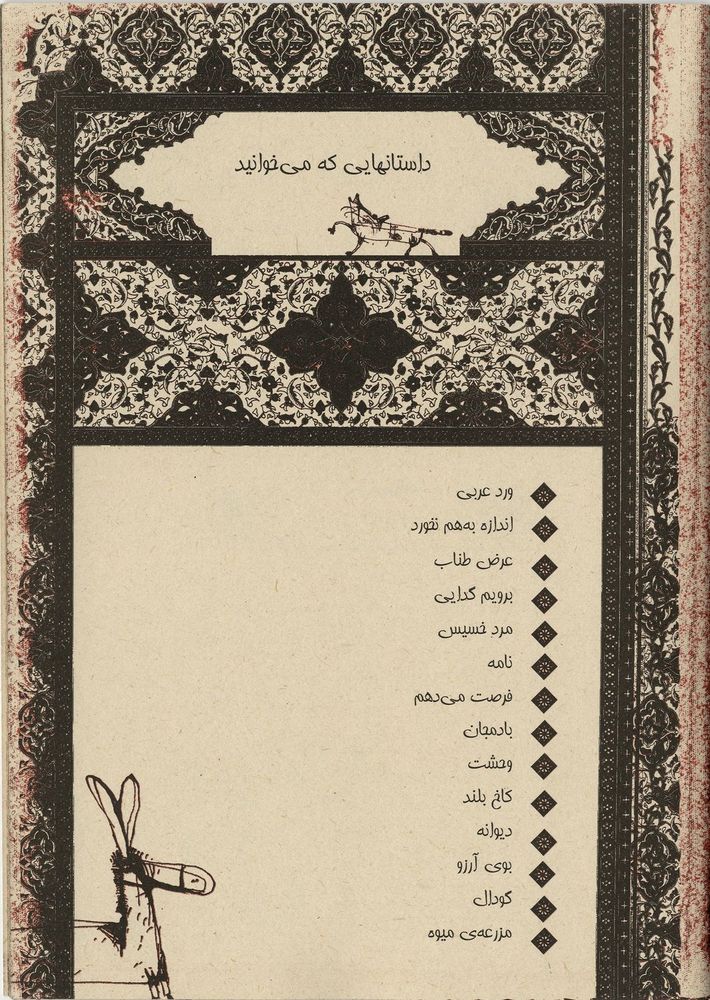 داستانهایی که می‌خوانید
ورد عربی
اندازه به‌هم نخورد
عرض طناب
برویم گدایی
مرد خسیس
نامه
فرصت می‌دهم
بادمجان
وحشت
کاخ بلند
دیوانه
بوی آرزو
گودال
مزرعه‌ی میوه